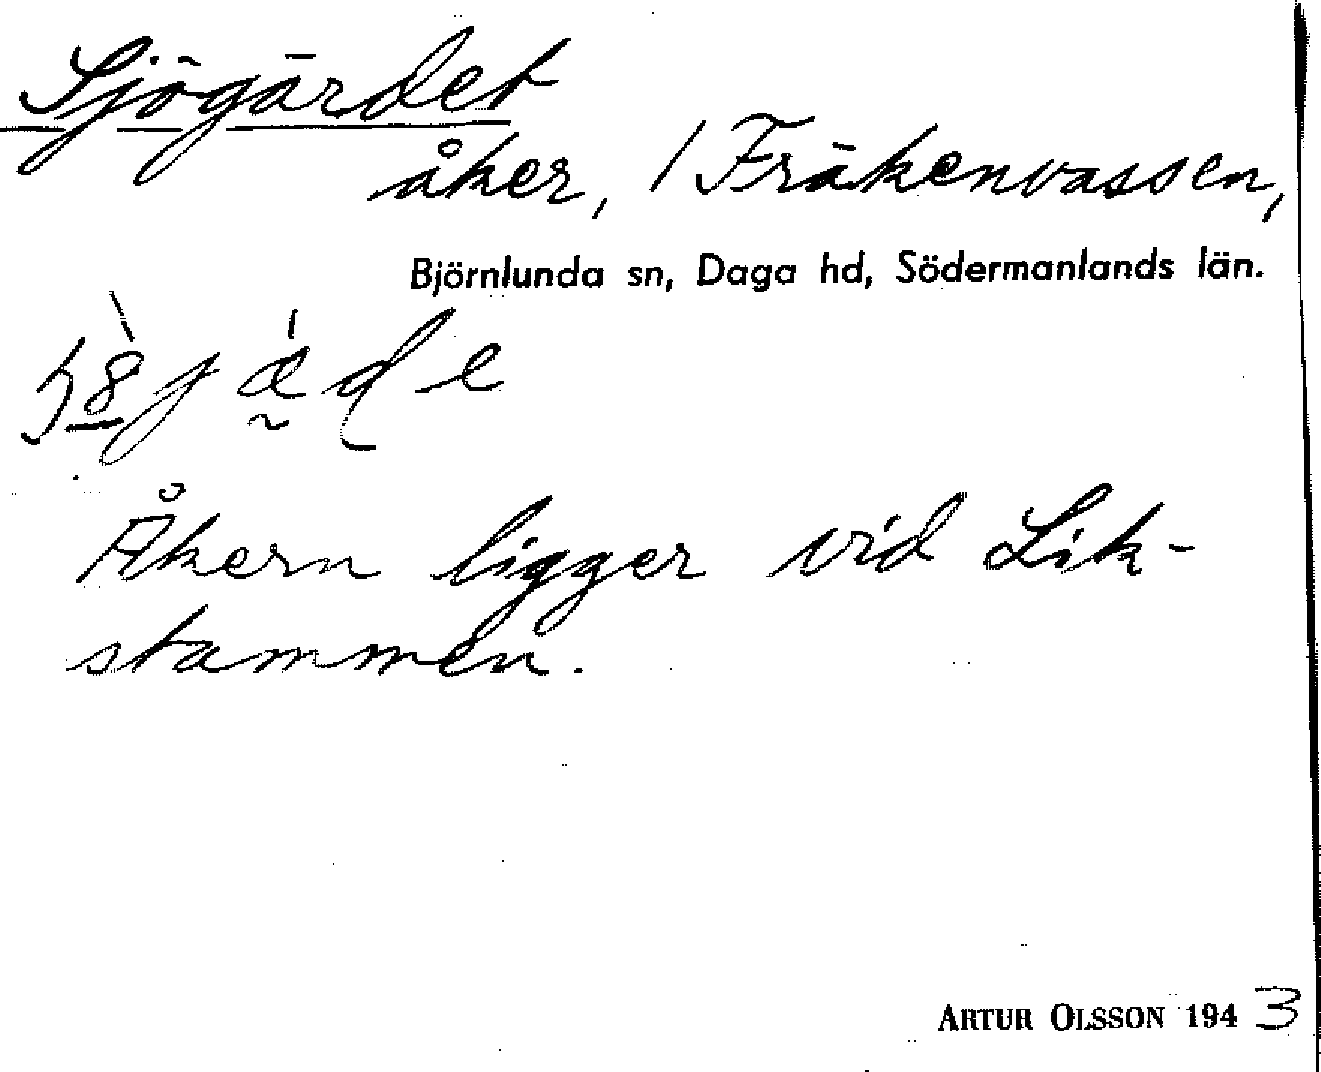 Sjögärdet
åker, / Fräkenvassen,
Björnlunda sn, Daga hd, Södermanlands län.
Åkern ligger vid Lik-
stammen.
ARTUR OLSSON 1943